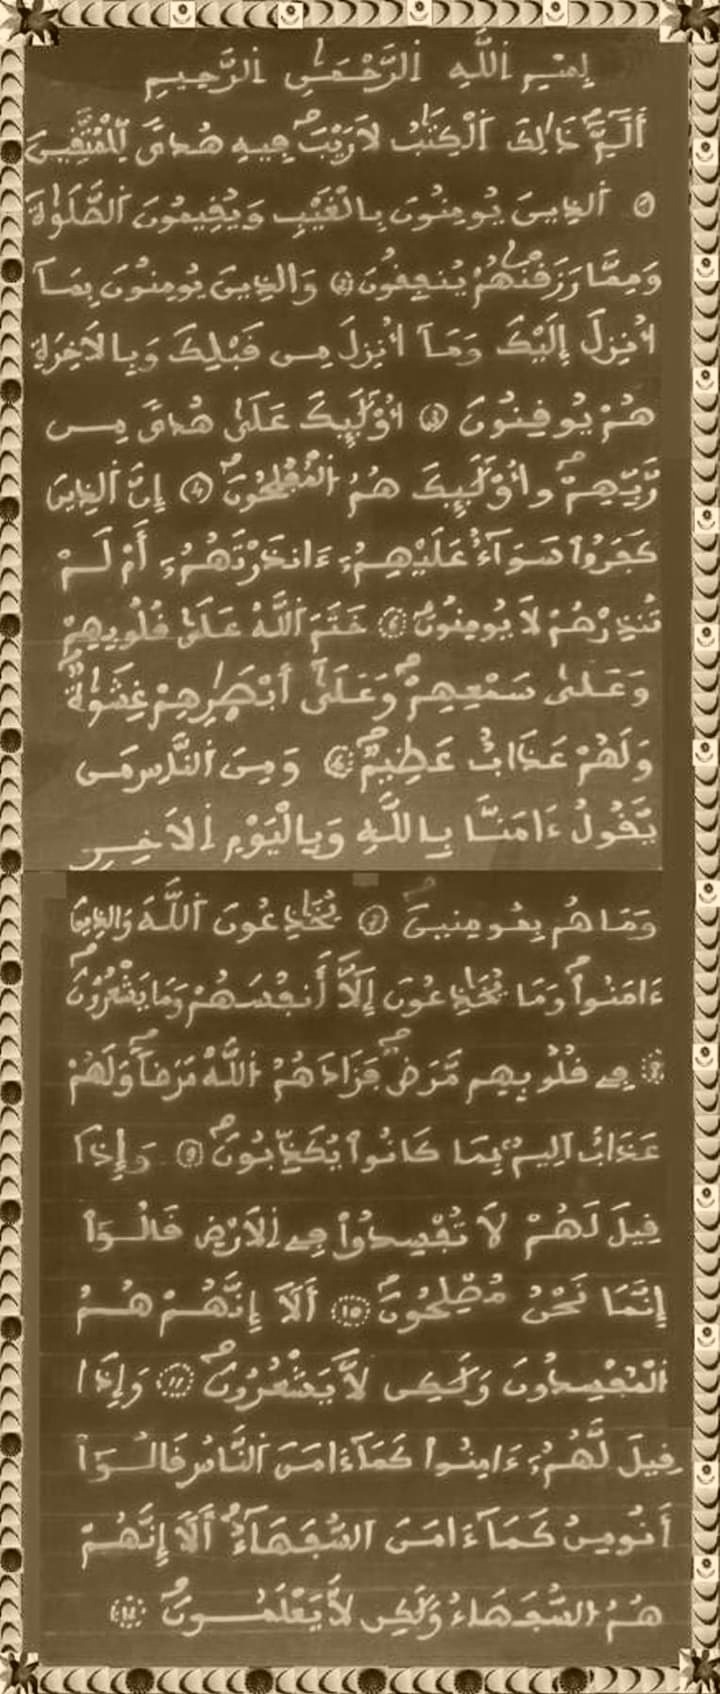 بِسْمِ اِ۬للَّهِ اِ۬لرَّحْمَٰنِ اِ۬لرَّحِيمِ
أَلَٓمِّٓۖ ذَٰلِكَ اَ۬لْكِتَٰبُ لَا رَيْبَۖ فِيهِ هُديٗ لِّلْمُتَّقِينَ
١ اَ۬لذِينَ يُومِنُونَ بِالْغَيْبِ وَيُقِيمُونَ اَ۬لصَّلَوٰةَ
وَمِمَّا رَزَقْنَٰهُمْ يُنفِقُونَۖ ٢ وَالذِينَ يُومِنُونَ بِمَآ
أُنزِلَ إِلَيْكَ وَمَآ أُنزِلَ مِن قَبْلِكَ وَبِالَاخِرَةِ
هُمْ يُوقِنُونَ ٣ أُوْلَٰٓئِكَ عَلَىٰ هُديٗ مِّن
رَّبِّهِمْۖ وَأُوْلَٰٓئِكَ هُمُ اُ۬لْمُفْلِحُونَۖ ٤ إِنَّ اَ۬لذِينَ
كَفَرُواْ سَوَآءٌ عَلَيْهِمُۥٓ ءَآنذَرْتَهُمُۥٓ أَمْ لَمْ
تُنذِرْهُمْ لَا يُومِنُونَۖ ٥ خَتَمَ اَ۬للَّهُ عَلَىٰ قُلُوبِهِمْ
وَعَلَىٰ سَمْعِهِمْۖ وَعَلَىٰٓ أَبْصَٰرِهِمْ غِشَٰوَةٞۖ
وَلَهُمْ عَذَابٌ عَظِيمٞۖ ٦ وَمِنَ اَ۬لنَّاسِ مَن
يَّقُولُ ءَامَنَّا بِاللَّهِ وَبِالْيَوْمِ اِ۬لَاخِرِ
وَمَا هُم بِمُومِنِينَۖ ٧ يُخَٰدِعُونَ اَ۬للَّهَ وَالذِينَ
ءَامَنُواْۖ وَمَا يُخَٰدِعُونَ إِلَّآ أَنفُسَهُمْ وَمَا يَشْعُرُونَۖ
٨ فِے قُلُوبِهِم مَّرَضٞۖ فَزَادَهُمُ اُ۬للَّهُ مَرَضاٗۖ وَلَهُمْ
عَذَابٌ اَلِيمُۢ بِمَا كَانُواْ يُكَذِّبُونَۖ ٩ وَإِذَا
قِيلَ لَهُمْ لَا تُفْسِدُواْ فِے اِ۬لَارْضِ قَالُوٓاْ
إِنَّمَا نَحْنُ مُصْلِحُونَۖ ١٠ أَلَآ إِنَّهُمْ هُمُ
اُ۬لْمُفْسِدُونَ وَلَٰكِن لَّا يَشْعُرُونَۖ ١١ وَإِذَا
قِيلَ لَهُمُۥٓ ءَامِنُواْ كَمَآ ءَامَنَ اَ۬لنَّاسُ قَالُوٓاْ
أَنُومِنُ كَمَآ ءَامَنَ اَ۬لسُّفَهَآءُۖ أَلَآ إِنَّهُمْ
هُمُ اُ۬لسُّفَهَآءُ وَلَٰكِن لَّا يَعْلَمُونَۖ ١٢